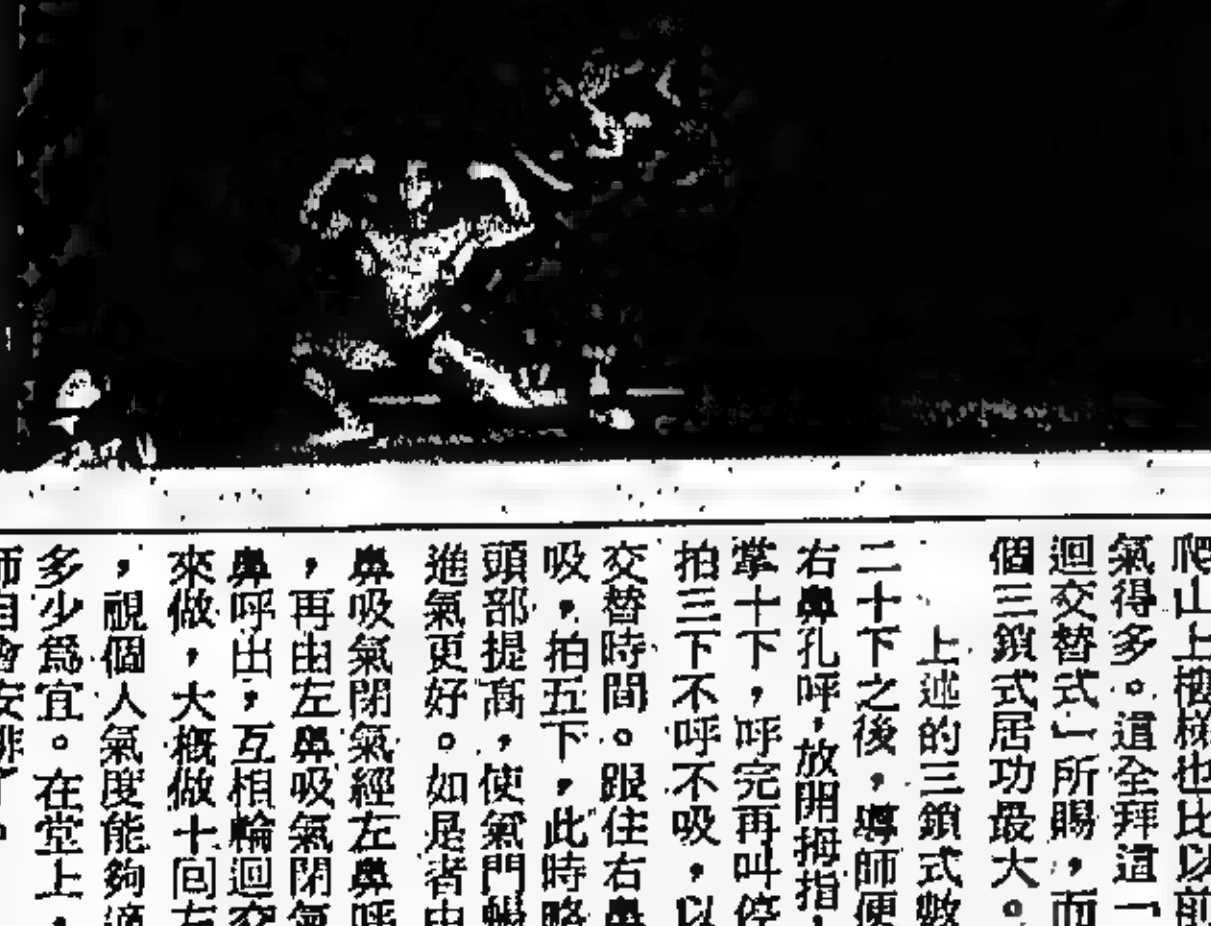 爬山上樓梯也比以前
氣得多。這全拜這一
迴交替式」所賜,而
個三鎖式居功最大。
上述的三鎖式數
二十下之後,導師便
右鼻孔呼,放開拇指,
掌十下,呼完再叫停
拍三下不呼不吸,以
交替時間。跟住右鼻
吸,拍五下,此時略
頭部提高,使氣門暢
進氣更好。如是者由
鼻吸氣閉氣經左鼻呼
,再由左鼻吸氣閉氣
鼻呼出,互相輪迴交
來做,大概做十回左
,視個人氣度能夠適
多少為宜。在堂上,
師自會安排了。